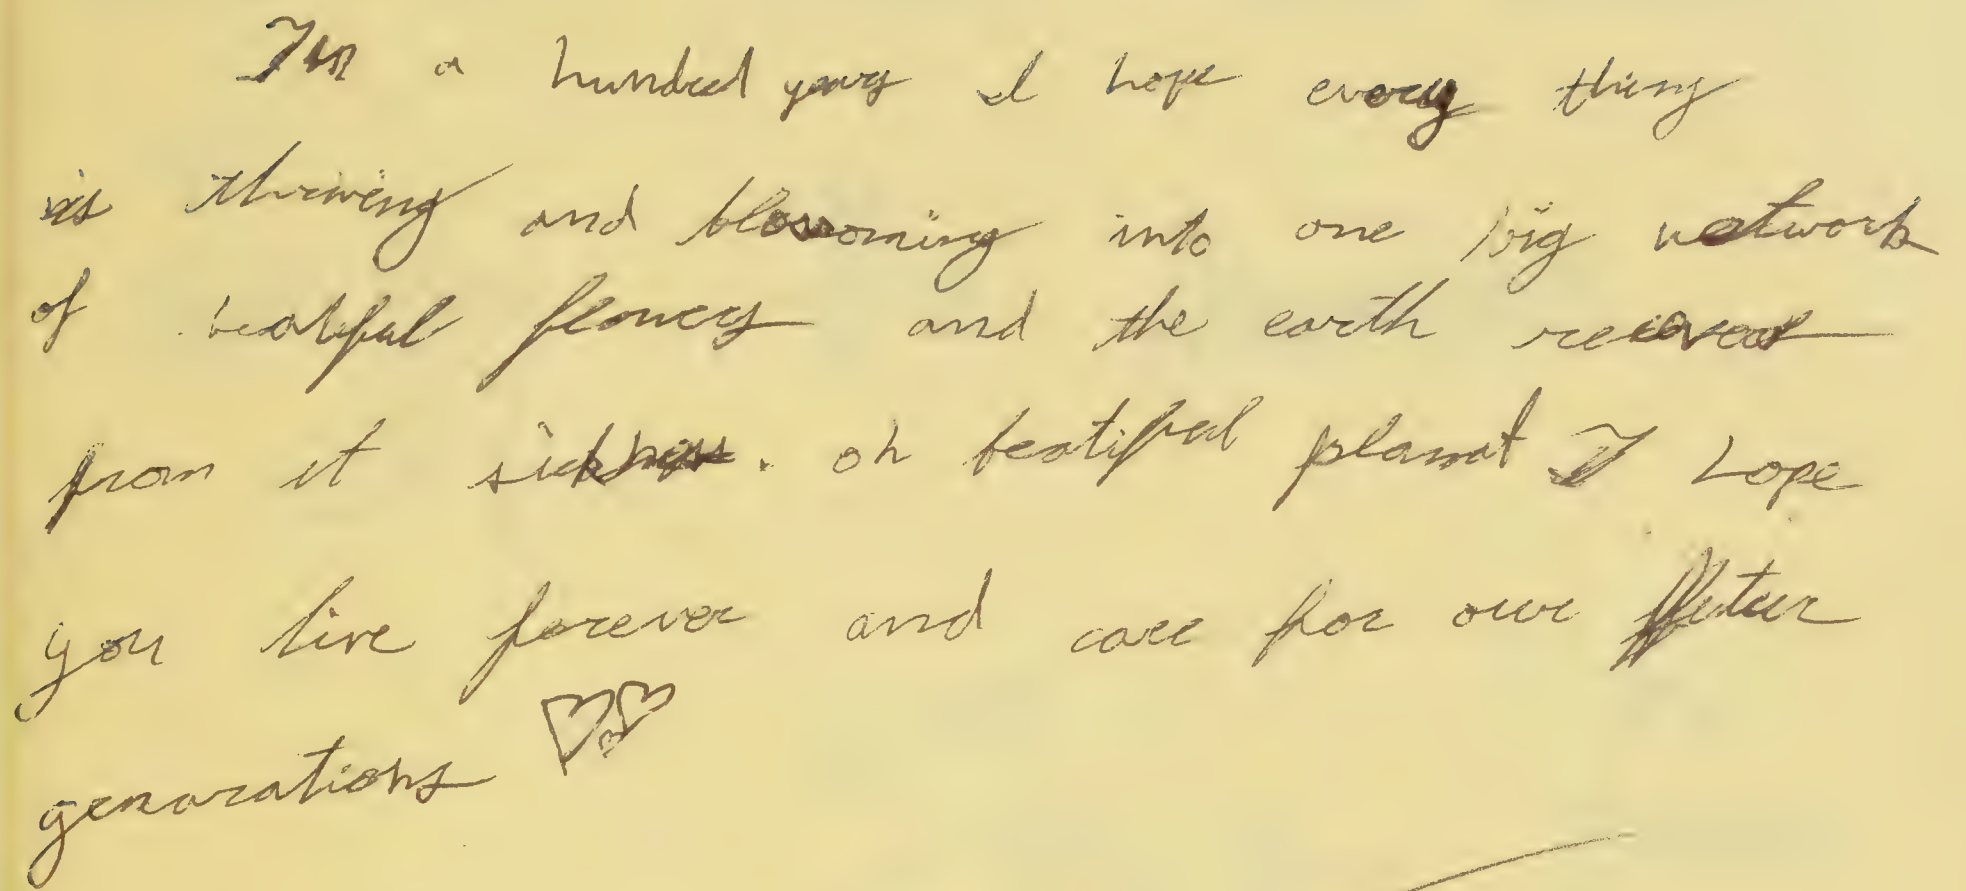 In a hundred years I hope every thing
is thriving and blossoming into one big network
of beatiful flowers and the earth recovers
from it sickness. oh beatiful planat I hope
you live forever and care for our futur
genarations